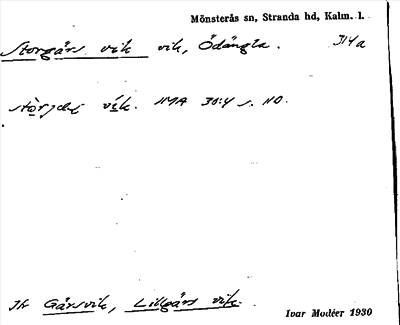 Mönsterås sn, Stranda hd, Kalm. l.
Storgårs vik vik, Ödängla. 314a
vík. IMA 30:4 s. 110.
Jfr Gårsvik, Lillgårs vik.
Ivar Modéer 1930